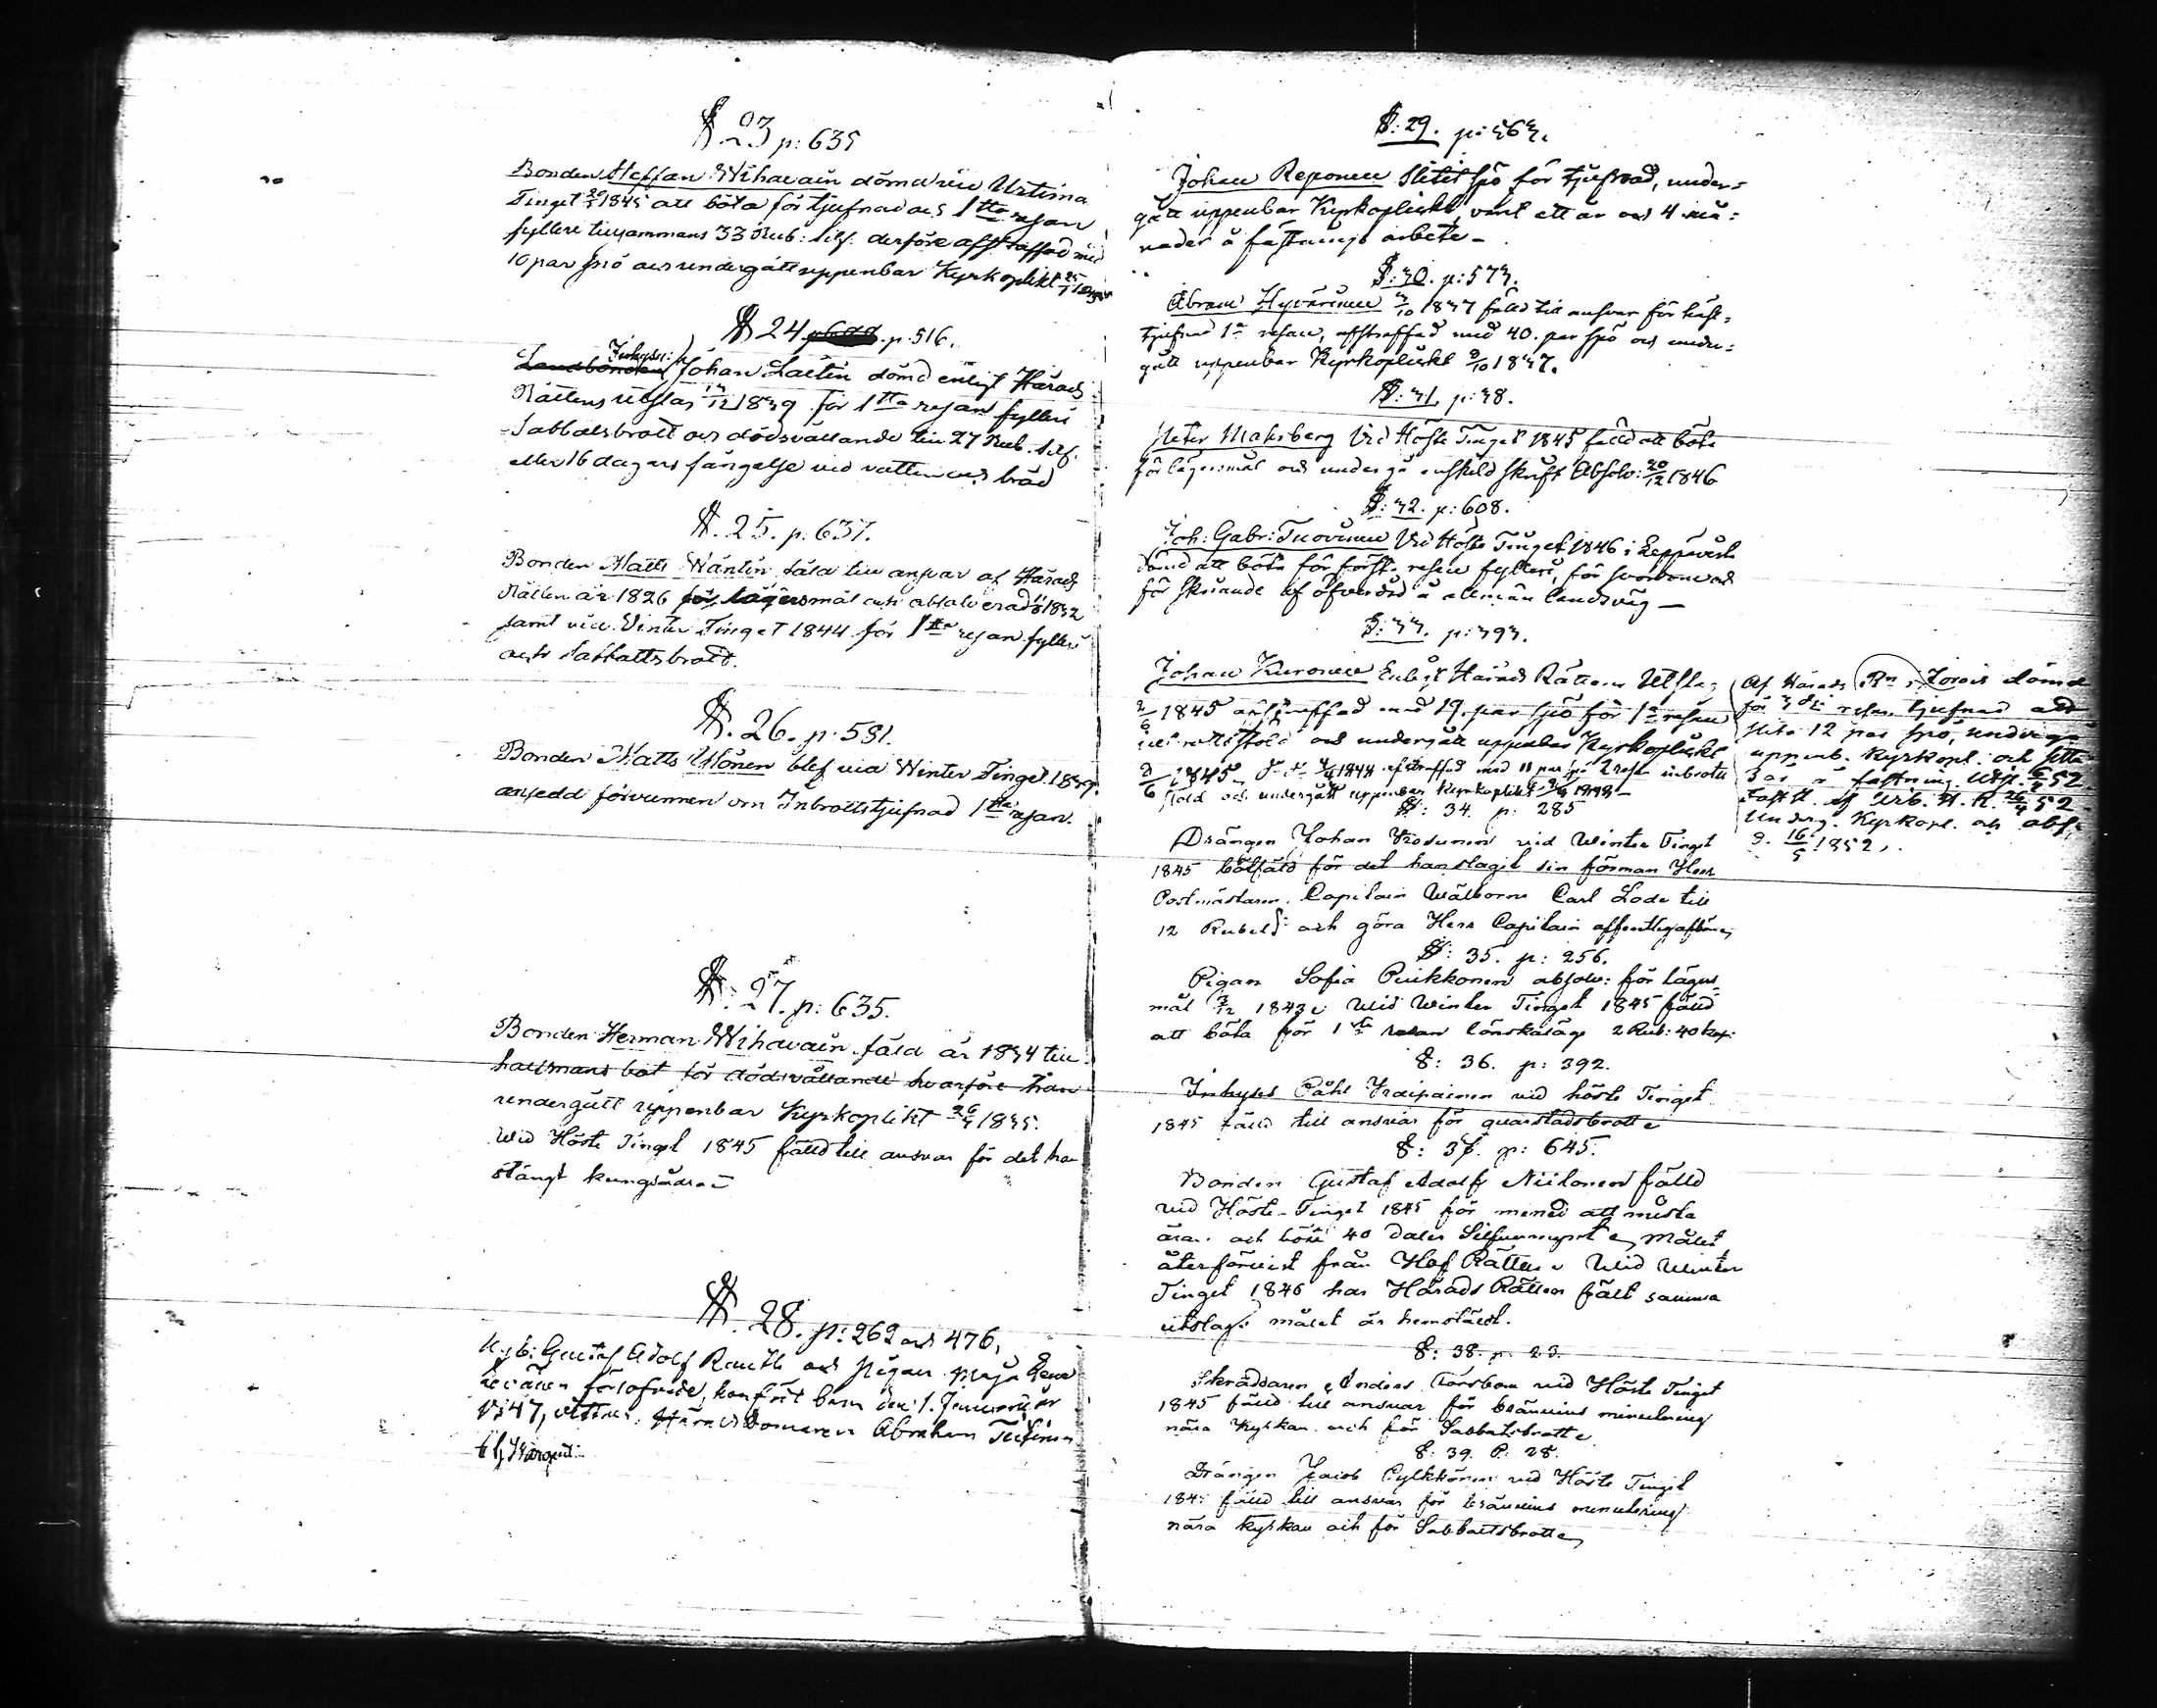 § 23 p: 635
Bonden Steffan Wihavain dömd vid Urtima
Tinget 20/5 1845 att böta för tjufnad och 1tta resan
fylleri tillsammans 33 Rub: Silf: derföre afstraffad med
10 par spö och undergått uppenbar Kyrkoplikt 25/5
§ 24 p. 516.
Inhyses: Johan Laitin dömd enligt Härads
Rättens utslag 13/12 1839 för 1tta resan fylleri
Sabbatsbrott och dödsvållande till 27 Rub. Silf.
eller 16 dagars fängelse vid vatten och bröd
§. 25. p. 637.
Bonden Matts Wäntin fäld till ansvar af Härads
Rätten år 1826 för lägersmål och absolverad 1832
samt vid Vinter Tinget 1844 för 1tta resan fylleri
och Sabbattsbrott.
§. 26. p. 531.
Bonden Matts Mönen blef vid Winter Tinget 1839.
ansedd förvunnen om Inbrottstjufnad 1tta resan.
§. 27. p: 635.
Bonden Herman Wihavain fäld år 1834 till
half mans bot för dödsvållande hvarföre han
undergått uppenbar Kyrkoplikt 26/4 1835.
Wid Höste Tinget 1845 fälld till ansvar för det han
stängt kungsådran
§. 28. p: 262 och 476.
Gustaf Adolf och Pigan Maja Lena
förlofvade, han född barn den 1. Januarii år
1847, vittnar: Häradsdomaren Abraham
§: 29. p: 363.
Johan Reponen Slitit spö för tjufnad, under=
gått uppenbar Kyrkoplickt, varit ett år och 4 må=
nader å fästnings arbete –
§: 30. p: 573.
Abram Hyvärinen 3/10 1837 fälld till ansvar för häst=
tjufnad 1a resan, afstraffad med 40. par spö och under=
gått uppenbar Kyrkoplickt 3/10 1837.
§: 31. p: 38.
Peter Malmberg Vid Höste Tinget 1845 fälld att böta
för lägersmål och undergå enskild skrift Absolv: 20/12 1846
§: 32. p: 608.
Joh: Gabr: Tuovinen Vid Höste Tinget 1846 i Leppävirta
dömd att böta för först. resan fylleri, för svordom och
för skriande af ofverdåd å allmän landsväg –
§: 33. p: 393.
Johan Kuronen Enligt Härads Rättens Utslag
2/6 1845 afstraffad med 19. par spö för 1a resan
stöld och undergått uppenbar Kyrkoplickt
2/6 1845. 3/4 1848 afstraffad med 11 par spö 2 resan inbrotts
stöld och undergått uppenbar Kyrkoplikt 3/4 1848 –
Af Härads Rn i Jorois dömd
för 3dje resan tjufnad att
slita 12 par spö, undergå
uppenb. Kyrkopl. och sitta
3 år å fästning. Utsl. 6/3 52.
Fastst. af Wib. H. R. 26/4 52.
Underg. Kyrkopl. och abs.
d. 16/5 1852.
§: 34. p: 285
Drängen Johan Kosunen vid Winter Tinget
1845 bötfäld för det han slagit sin förman Herr
Postmästaren, Capitain Wälborne Carl Lode till
12 Rubel S: och göra Herr Capitain offentlig afbön
§: 35. p: 256.
Pigan Sofia Puikkonen absolv: för läger=
mål 3/12 1843. Wid Winter Tinget 1845 fälld
att böta för 1sta resan lönskaläge 2 Rub: 40 kop:
§: 36. p: 392.
Inhyses Påhl Kraipainen vid höste Tinget
1845 fälld till ansvar för quarstadsbrott
§: 37. p: 645.
Bonden Gustaf Adolf Niilonen fälld
vid Höste-Tinget 1845 för mened att mista
äran och böta 40 daler Silfvermynt, målet
återförvist från Hof Rätten. Wid Winter
Tinget 1846 har Härads Rätten fält samma
utslag; målet är hemstäldt.
§: 38. p: 23.
Skräddaren Anders Törsbom vid Höste Tinget
1845 fälld till ansvar för bränvins minutering
nära kyrkan och för Sabbatsbrott
§: 39. P: 28.
Drängen Jacob Pylkkönen vid Höste Tinget
184 fälld till ansvar för bränvins minutering
nära kyrkan och för Sabbatsbrott